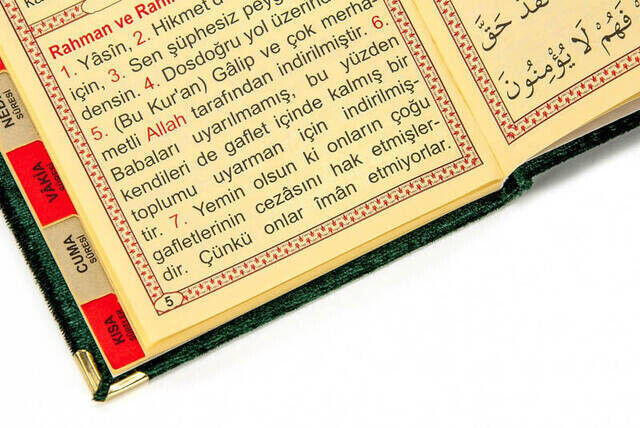 Rahman ve Rahîm
1. Yâsîn, 2. Hikmet d
için, 3. Sen şüphesiz peyg
densin. 4. Dosdoğru yol üzerind
5. (Bu Kur'an) Gâlip ve çok merha-
metli Allah tarafından indirilmiştir. 6.
Babaları uyarılmamış, bu yüzden
kendileri de gaflet içinde kalmış bir
toplumu uyarman için indirilmiş-
tir. 7. Yemin olsun ki onların çoğu
gafletlerinin cezâsını hak etmişler-
dir. Çünkü onlar îmân etmiyorlar.
5
VÂKIA
SÛRESİ
CUMA
SÛRESİ
KISA
SÛRELER
حَقَّ
فَهُمْ لَا يُؤْمِنُونَ